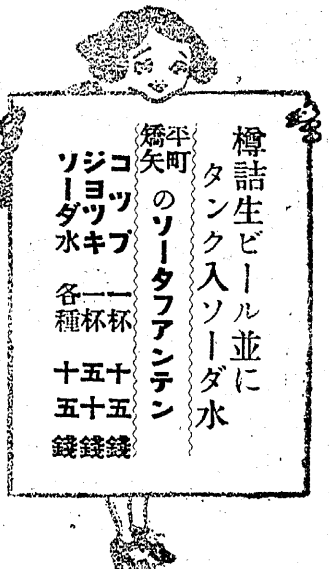 樽詰生ビール並に
タンク入ソーダ水
平町
矯矢のソータフアンテン
コップ 一杯 十五錢
ジヨツキ 一杯 五十錢
ソーダ水 各種 十五錢